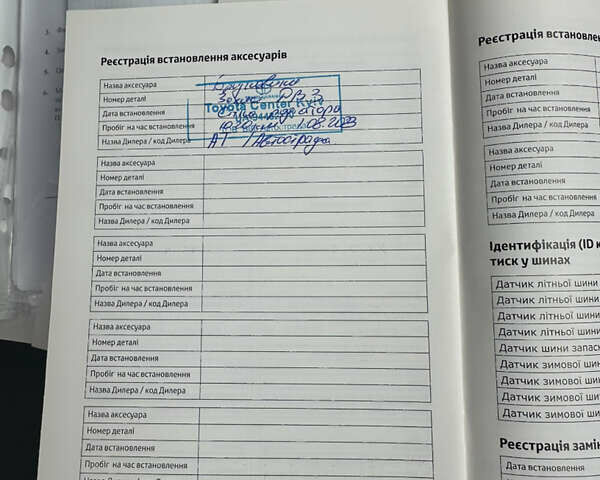 Реєстрація встановлення аксесуарів
Назва аксесуара
Номер деталі
Дата встановлення
Пробіг на час встановлення
Назва Дилера / код Дилера
Toyota Center Kyiv
Назва аксесуара
Номер деталі
Дата встановлення
Пробіг на час встановлення
Назва Дилера / код Дилера
Назва аксесуара
Номер деталі
Дата встановлення
Пробіг на час встановлення
Назва Дилера / код Дилера
Назва аксесуара
Номер деталі
Дата встановлення
Пробіг на час встановлення
Назва Дилера / код Дилера
Назва аксесуара
Номер деталі
Дата встановлення
Пробіг на час встановлення
Реєстрація встановле
Назва аксесуара
Номер деталі
Дата встановлення
Пробіг на час
Назва Дилера / код
Назва аксесуара
Номер деталі
Дата встановлення
Пробіг на час
Назва Дилера / код Дилера
Ідентифікація (ID к
тиск у шинах
Датчик літньої шини
Датчик літньої шини
Датчик літньої шини
Датчик літньої шини
Датчик шини запас
Датчик зимової шин
Датчик зимової ши
Датчик зимової ши
Датчик зимової ши
Реєстрація замін
Дата встановлення